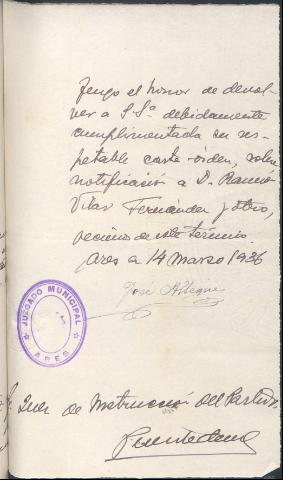 Tengo el honor de devol-
ver a S.Sª. debidamente
cumplimentada su res-
petable carta-orden, sobre
notificación a D. Ramón
Vilar Fernández y otro,
vecinos de este término.
Ares a 14 Marzo 1936
José
JUZGADO MUNICIPAL
ARES
Juez de Instrucción del Partido.
Puentedeume